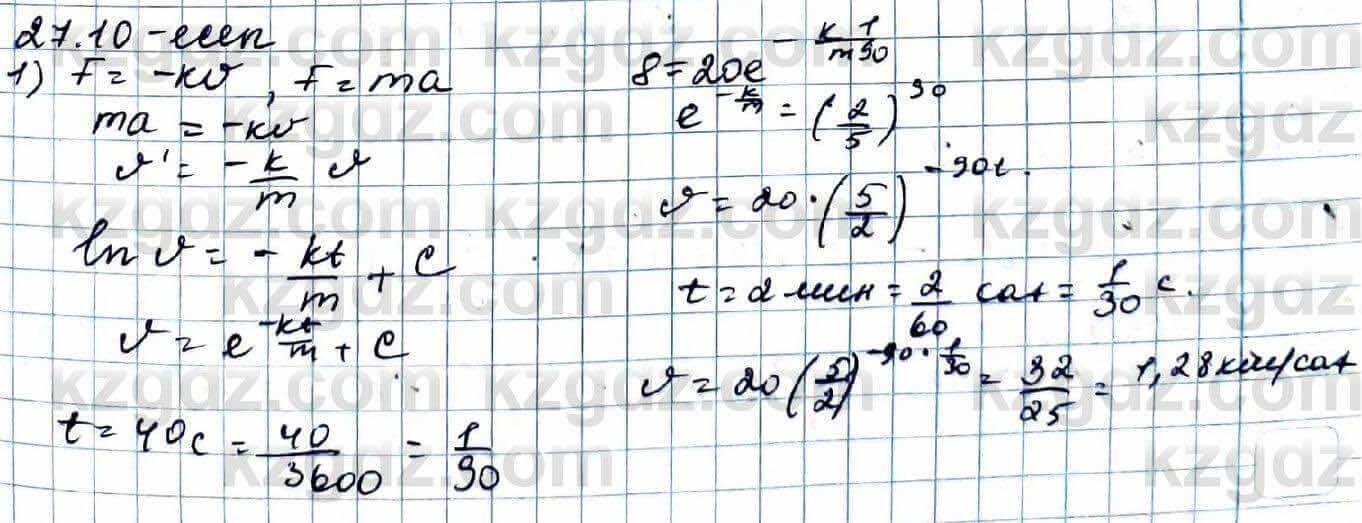 27.10-есеп
1) F = -kv, F = ma
ma = -kv
v' = -k/m v
ln v = -kt/m + C
v = e^(-kt/m) + C
t = 40c = 40/3600 = 1/90
8 = 20e^(-k/m 1/90)
e^(-k/m) = (2/5)^90
v = 20·(5/2)^(-90t).
t = 2 мин = 2/60 сағ = 1/30 c.
v = 20(5/2)^(-90·1/30) = 32/25 = 1,28 км/сағ
kzgdz.com